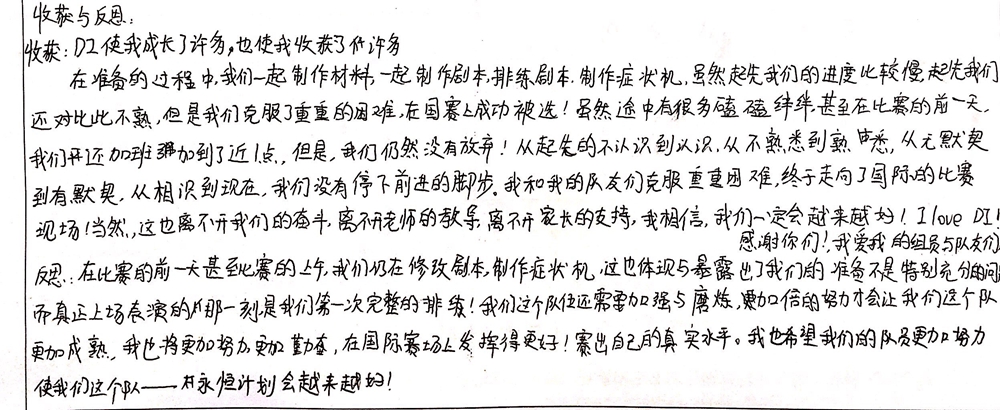 收获与反思:
收获:DI使我成长了许多,也使我收获了许多
在准备的过程中,我们一起制作材料,一起制作剧本,排练剧本.制作症状机,虽然起先我们的进度比较慢,起先我们
还对比此不熟,但是我们克服了重重的困难,在国赛上成功被选!虽然途中有很多磕磕绊绊,甚至在比赛的前一天,
我们还加班加到了近1点,但是,我们仍然没有放弃!从起先的不认识到认识,从不熟悉到熟悉,从无默契
到有默契,从相识到现在,我们没有停下前进的脚步。我和我的队友们克服重重困难,终于走向了国际的比赛
现场!当然,这也离不开我们的奋斗,离不开老师的教导,离不开家长的支持,我相信,我们一定会越来越好!I love DI!
感谢你们!我爱我的组员与队友们
反思:在比赛的前一天甚至比赛的上午,我们仍在修改剧本,制作症状机,这也体现与暴露出了我们的准备不是特别充分的问
而真正上场表演的那一刻,是我们第一次完整的排练!我们这个队伍还需要加强与磨炼,要加倍的努力才会让我们这个队
更加成熟,我也将更加努力,更加勤奋,在国际赛场上发挥得更好!赛出自己的真实水平。我也希望我们的队员更加努力
使我们这个队——永恒计划会越来越好!